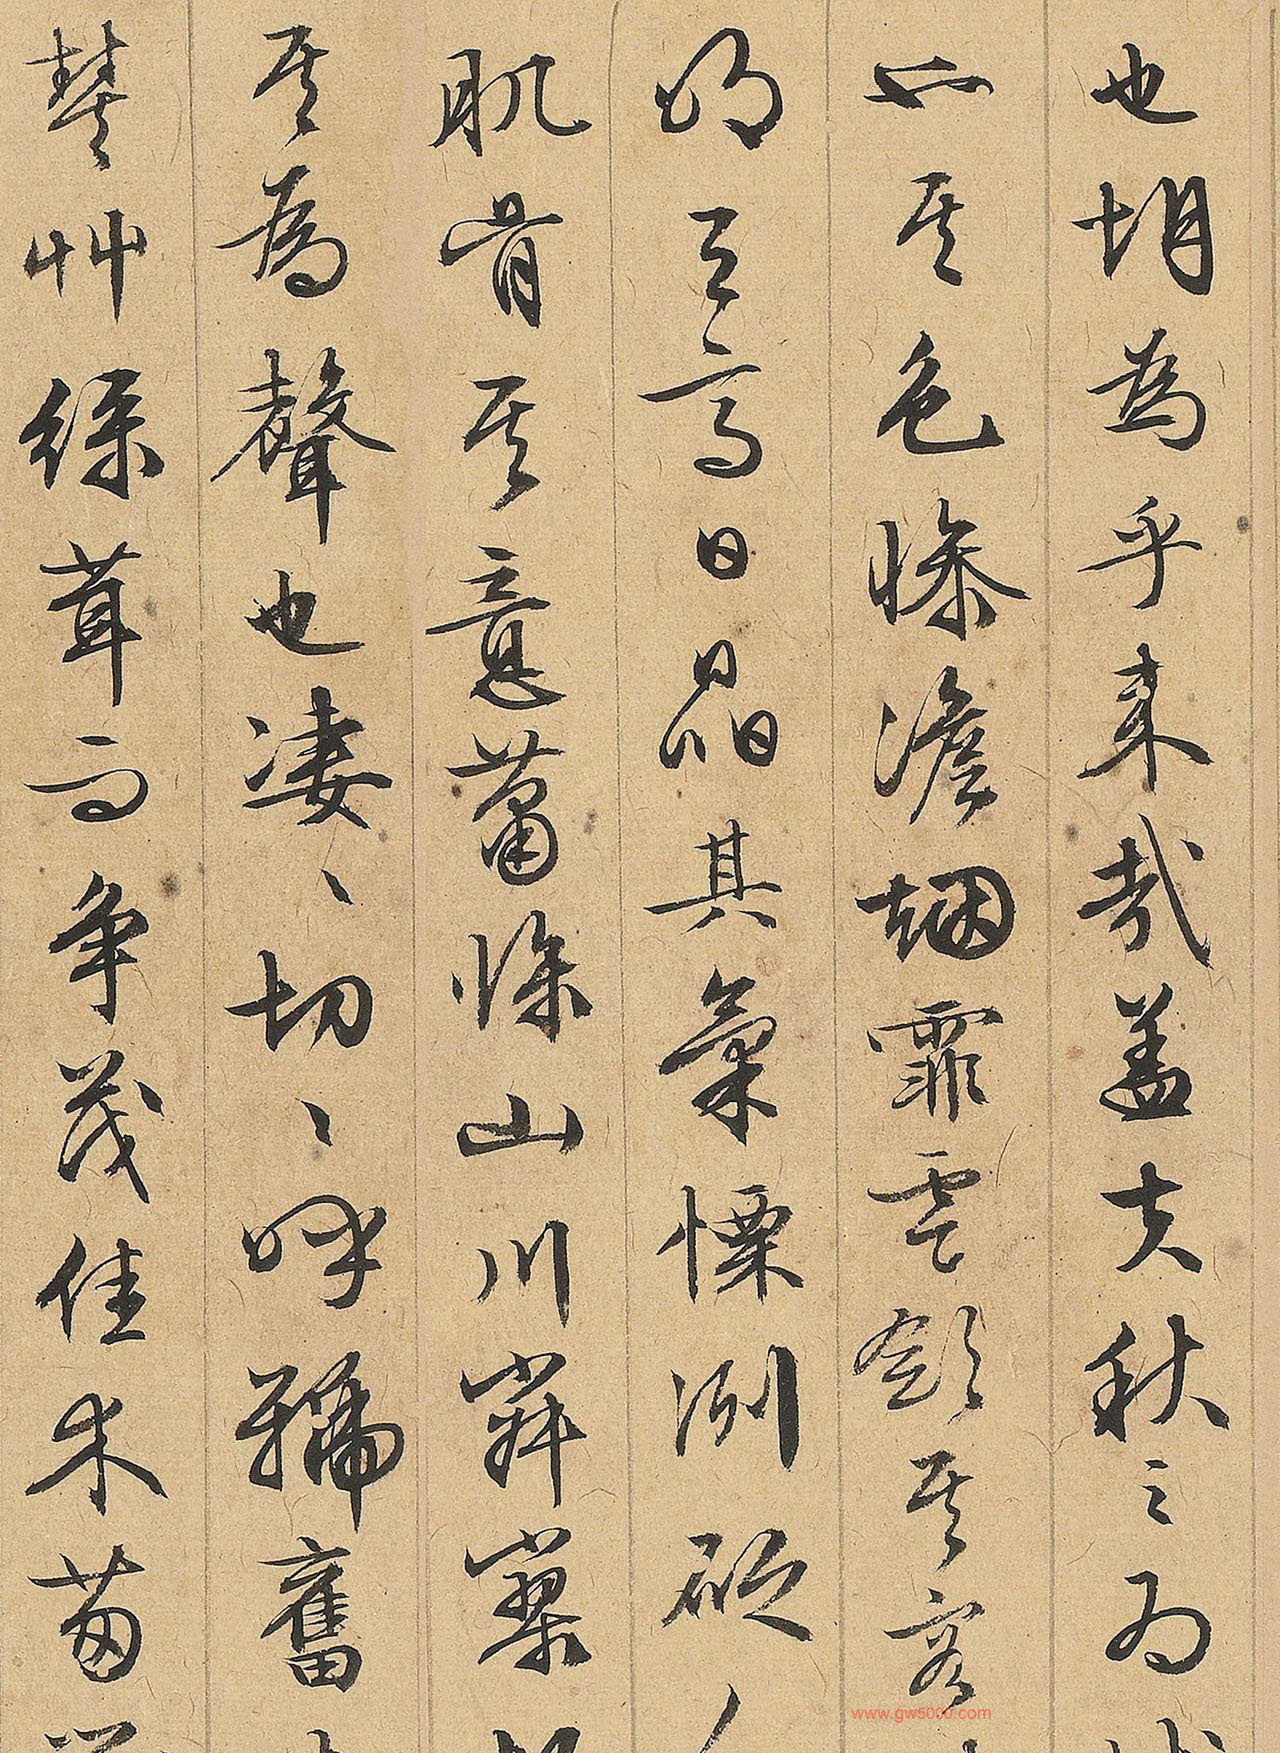 也胡為乎来哉盖夫秋之為
也其色惨澹烟霏雲斂其容
明天高日晶其氣慄冽砭人
肌骨其意蕭條山川寂寥
其為聲也凄〻切〻呼號奮
豐艸緑茸而争茂佳木葱
www.gw5000.com